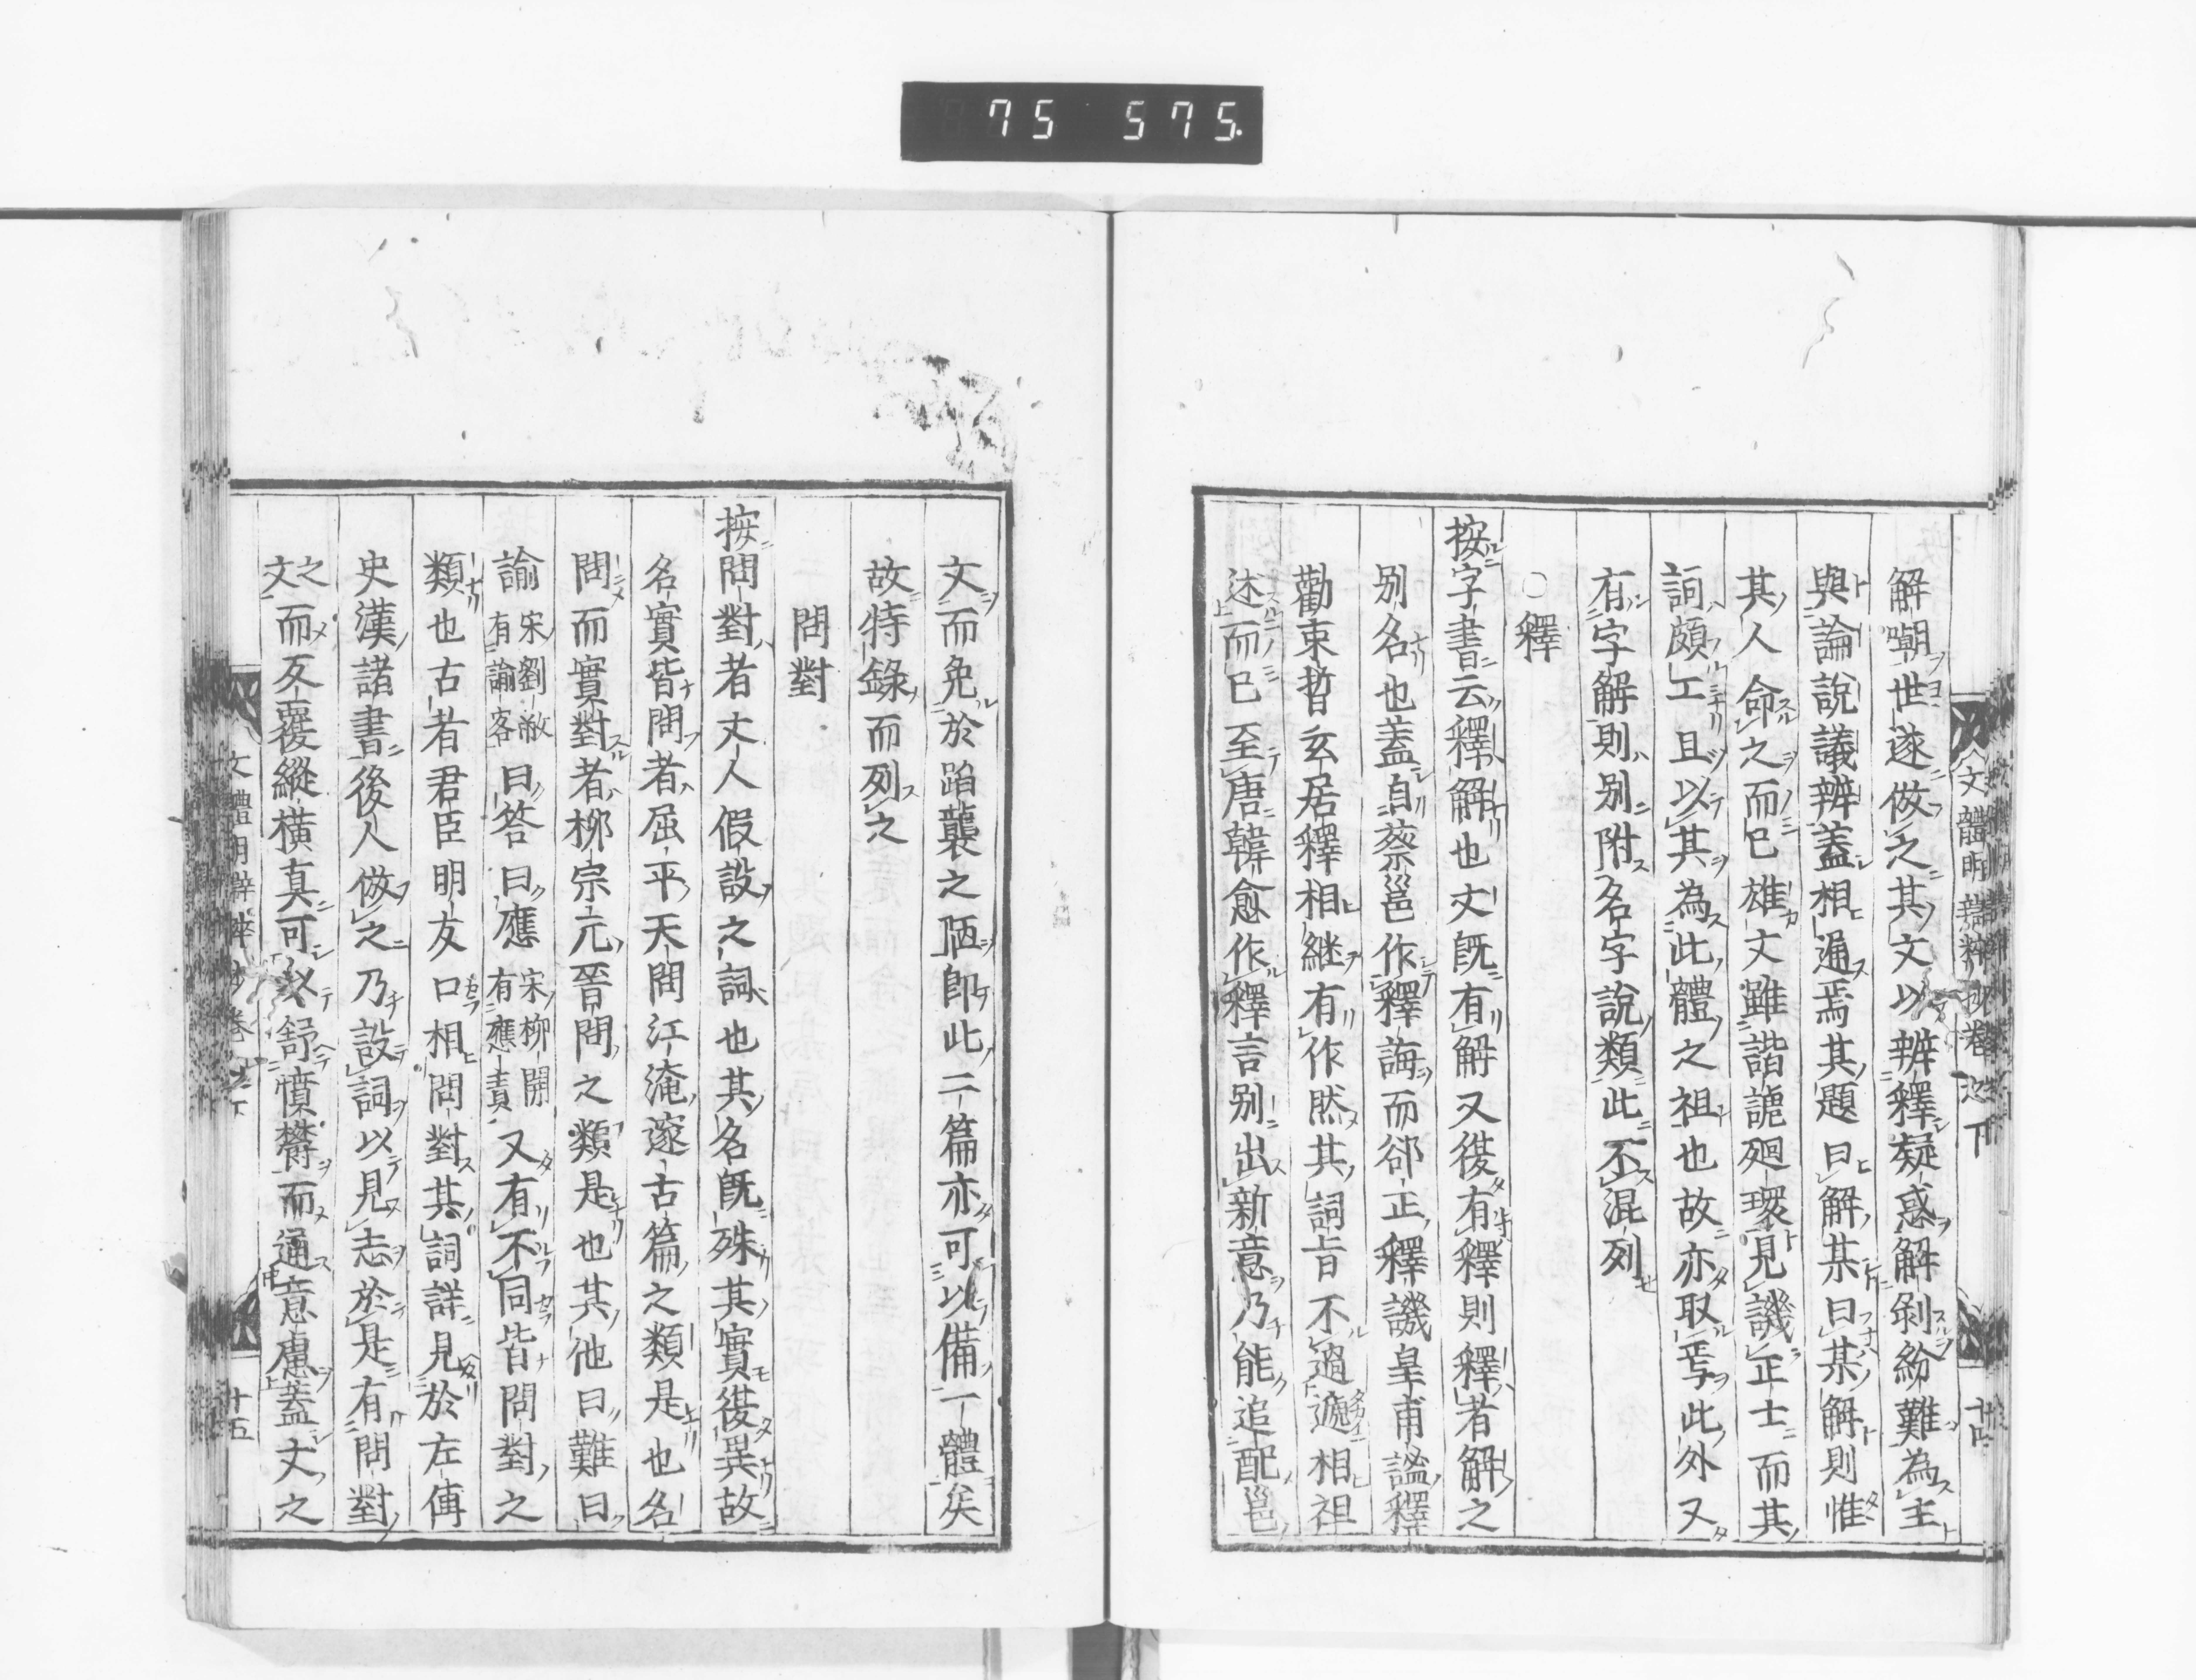 75 575.
解嘲世遂倣之其文以辨釋疑惑解剥紛難為主
與論說議辨蓋相通焉其題曰解某曰某解則惟
其人命之而已雄文雖諧謔廻環見譏正士而其
詞頗工且以其為此體之祖也故亦取焉此外又
有字解則别附名字說類此不混列
○釋
按字書云釋解也文既有解又復有釋則釋者解之
别名也蓋自蔡邕作釋誨而郤正釋譏皇甫謐釋
勸束晳玄居釋相継有作然其詞旨不過遞相祖
述而已至唐韓愈作釋言别出新意乃能追配邕
文體明辯粹抄卷之下
文而免於蹈襲之陋即此二篇亦可以備一體矣
故特錄而列之
問對
按問對者文人假設之詞也其名既殊其實復異故
名實皆問者屈平天問江淹邃古篇之類是也名
問而實對者柳宗元晉問之類是也其他曰難曰
諭宋劉敞有諭客曰答曰應宋柳開有應責又有不同皆問對之
類也古者君臣朋友口相問對其詞詳見於左傳
史漢諸書後人倣之乃設詞以見志於是有問對
之文而反覆縱橫真可以舒憤欝而通意慮蓋文之
文體明辯粹抄卷之下
十五